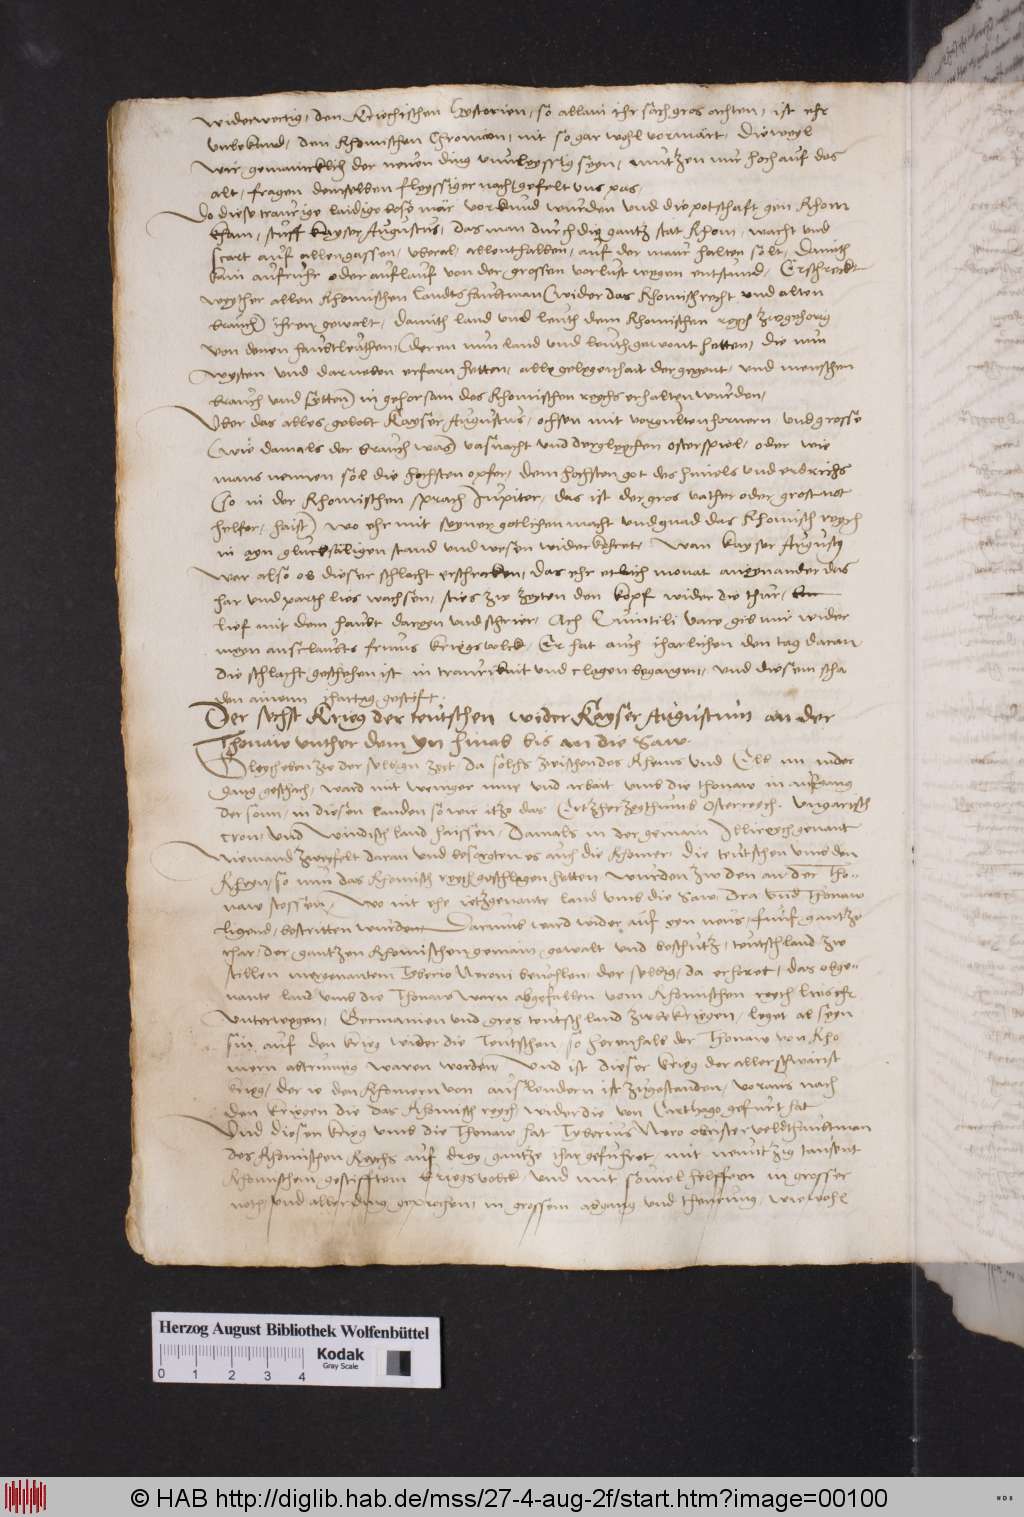 widerwertig, den Kriechischen Hystorien, so allain ihr sach gros achten, ist ehr
unbekand, den Rhomischen Chronicon, nit so gar wohl vormärt, dieweyl
wir gemaincklich der neuen ding unvleyssig seyn, nur hoch auf das
alt, fragen demselben fleyssiger nach, gefelt uns pas,
Do diese traurige laidige bose mär vorkund wurden und die potschaft gen Rhom
kham, schuff kayser Augustus, das man durch die gantz stat Rhom, wacht und
scart auf allen gassen, uberal, allenthalben, auf der maur halten solt, damith
kain aufruhr oder auflauf von der grossen vorlust wegen entstund, Erschreckt
weyther allen Rhomischen landtshaubtman (wider das Rhomisch recht und alten
brauch) ihren gewalt, damith land und leuth dem Rhomischen reych zugehorig
von denen haubtleuthen, (deren nun land und leuth gewont hetten, die nun
westen und darneben erfarn hetten, alle gelegenhait der gegent, und menschen
brauch und sytten) in gehorsam des Rhomischen reychs erhalten wurden,
Uber das alles gelobt Kayser Augustus, ochsen mit vorgulten hornern und grosse
(wie damals der brauch was) vasnacht und dergleychen osterspiel, oder wie
mans nennen sol die hochsten opfer, dem hochsten got des himels und erdrichs
(so in der Rhomischen sprach Jupiter, das ist der gros vather oder gros not
helfer, haist) wo ehr mit seyner gotlichen macht und gnad das Rhomisch reych
in ayn glucksäligen stand und wesen widerkehret, Wan kayser Augustus
war also ob dieser schlacht erschrocken, das ehr etlich monat aneynander das
har und parth lies wachsen, sties zw zeyten den kopf wider die thür,
lief mit dem haubt dargegen und schrier, Ach Quintili Vare gib mir wider
meyn kriegsvolck, Er hat auch iharlichen den tag daran
die schlacht geschehen ist in traurikait und clagen begangen, und diesem scha
den ainenn ihartag gestift.
Der sechst Krieg der teutschen wider Kayser Augustum an der
Thonaw unther dem yn hinab bis an die Saw.
Gleych eben zw der selbign zeyt, da solchs zwischen des Rheins und Elb im nider
gang geschach, ward nit weniger mue und arbait umb die thonaw in aufgang
der sonn, in diesen landen so wir itzo das Ertzherzogthumb Osterreych, Ungarisch
cron, und Windisch land haissen, Damals in der gemain Illireych genant
Niemand zweyfelt daran und besorgten es auch die Rhomer, die teutschen umb den
Rheyn, so nun das Rhomisch reych geschlagen hetten wurden zw den an der Tho-
naw stossen, Wo nit ehe ietzgenante land umb die Saw, Dra und Thonaw
ligend, bestritten wurden Darumb ward wider auf eyn neus, funf gantze
ihar, der gantzen Rhomischen gemain gewalt und beschutz, teutschland zw
stillen mergenantem Tyberio Neroni bevohlen, der selbig, da er horet, das obge-
nante land umb die Thonaw warn abgefallen vom Rhomischen reych lies ehr
unterwegen, Germanien und gros teutschland zw bekriegen, leget al seyn
sin auf den krieg wider die Teutschen, so herenhalb der Thonaw von Rho
mern abtrunnig waren worden, Und ist dieser krieg der aller schwärist
krieg, der ie den Rhomern von auslendern ist zugestanden, voraus nach
den kriegen die das Rhomisch reych wider die von Carthago gefurt hat
Und diesen krieg umb die Thonaw hat Tyberius Nero obrister veldthaubtman
des Rhomischen Reychs auf drey gantze ihar gefuhret, mit neuntzig tausent
Rhomischem gestifftem kriegsvolck, und mit soviel helffern in grosser
noth, und allerding, in grossem abgang und theurung, wiewohl
Herzog August Bibliothek Wolfenbüttel
0 1 2 3 4
Kodak
Gray Scale
© HAB http://diglib.hab.de/mss/27-4-aug-2f/start.htm?image=00100